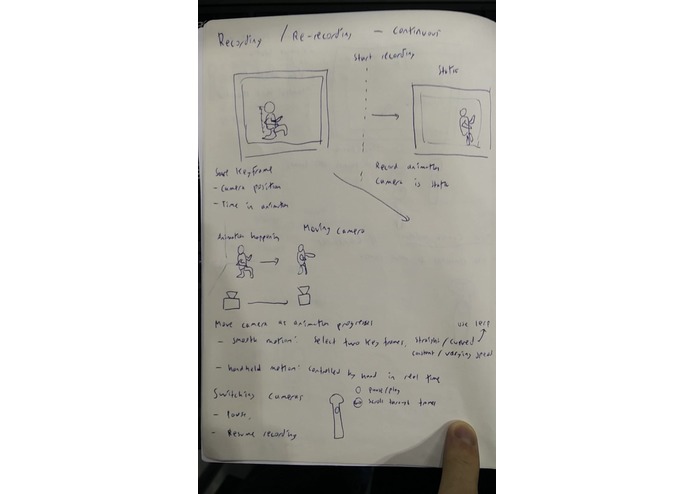 Recording / Re-recording - continuous
Start recording
Static
Save keyframe
- Camera position
- Time in animation
Record animation
Camera is static
Animation happening
Moving camera
Move camera as animation progresses
- smooth motion: select two keyframes, straight/curved
constant/varying speed
use lerp
- handheld motion: controlled by hand in real time
Switching cameras
- Pause,
- Resume recording
pause/play
scrolls through frames